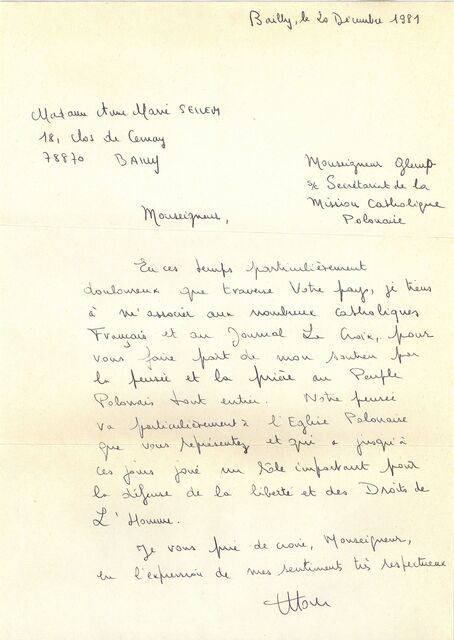 Bailly, le 20 Décembre 1981
Madame Anne Marie
18, clos de Cernay
78870 BAILLY
Monseigneur Glemp
s/c Secrétariat de la
Mission Catholique
Polonaise
Monseigneur,
En ces temps particulièrement
douloureux que traverse Votre pays, je tiens
à m'associer aux nombreux catholiques
Français et au Journal La Croix, pour
vous faire part de mon soutien par
la pensée et la prière au Peuple
Polonais tout entier. Notre pensée
va particulièrement à l'Eglise Polonaise
que vous représentez et qui a jusqu'à
ces jours joué un rôle important pour
la défense de la liberté et des Droits de
L'Homme.
Je vous prie de croire, Monseigneur,
en l'expression de mes sentiments très respectueux